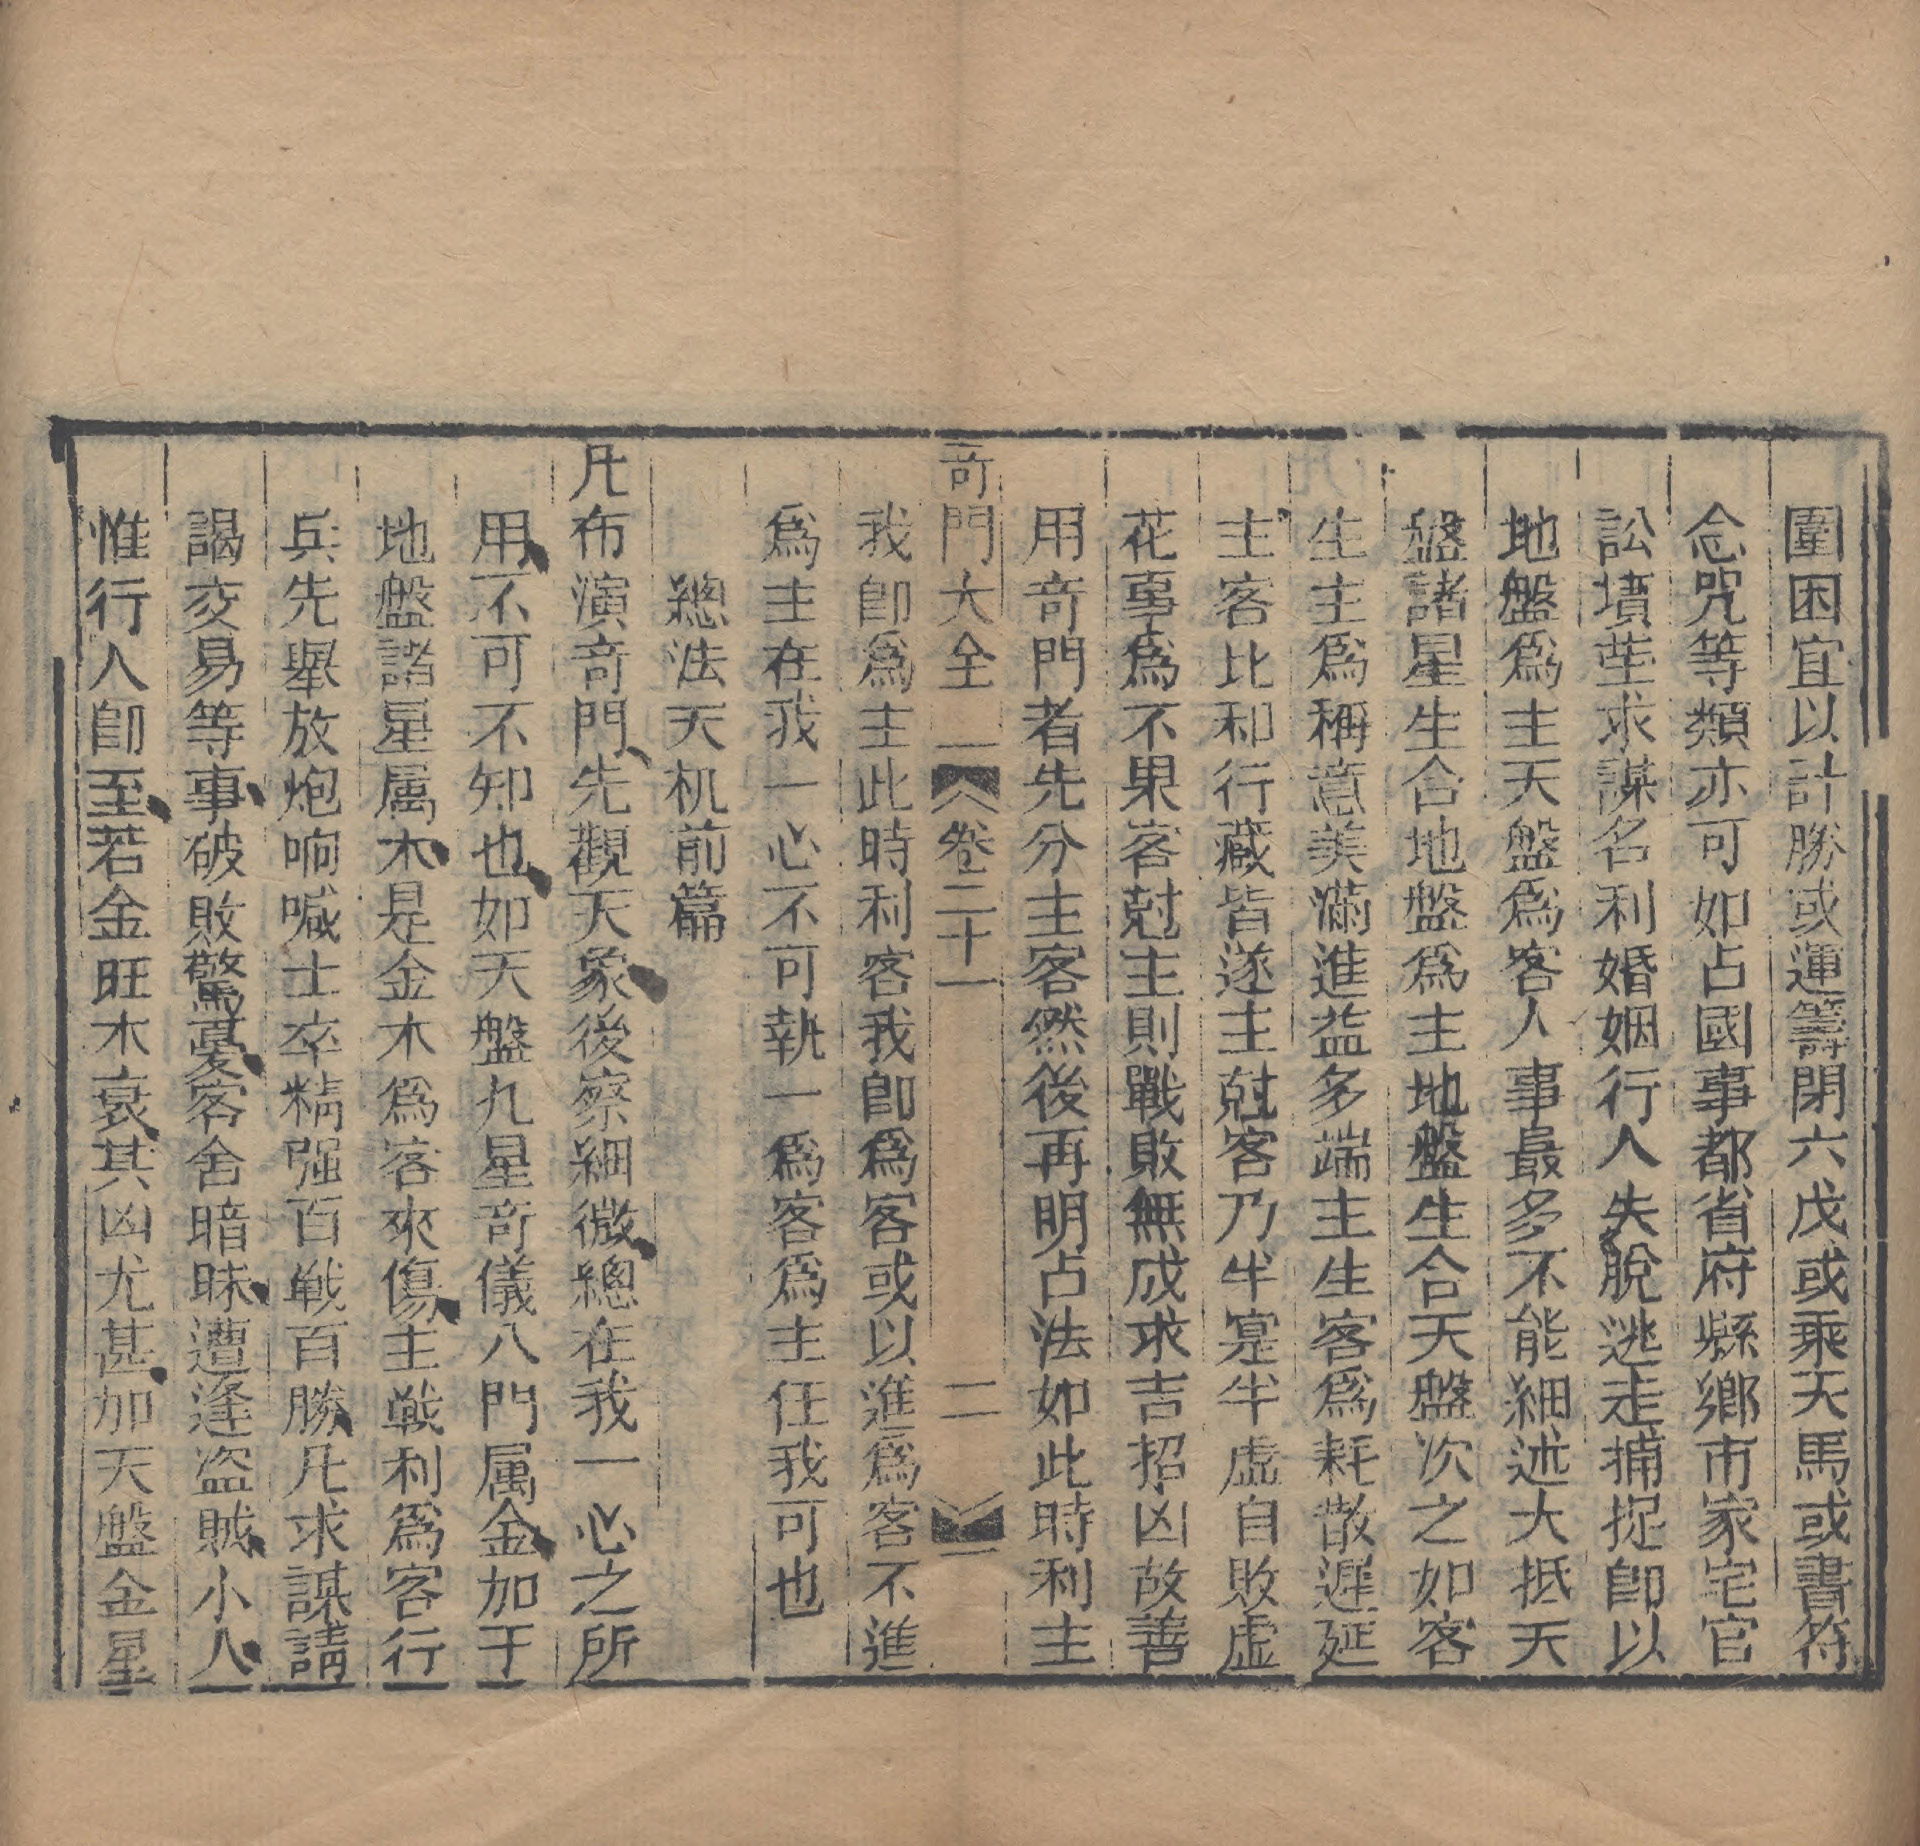 圍困宜以計勝或運籌閉六戊或乘天馬或書符
念咒等類亦可如占國事都省府縣鄉市家宅官
訟墳塋求謀名利婚姻行人失脫逃走捕捉卽以
地盤爲主天盤爲客人事最多不能細述大抵天
盤諸星生合地盤爲主地盤生合天盤次之如客
生主爲稱意美滿進益多端主生客爲耗散遲延
主客比和行藏皆遂主尅客乃半寔半虛自敗虛
花事爲不果客尅主則戰敗無成求吉招凶故善
用奇門者先分主客然後再明占法如此時利主
奇門大全 卷二十一 二
我卽爲主此時利客我卽爲客或以進爲客不進
爲主在我一心不可執一爲客爲主任我可也
總法天机前篇
凡布演奇門先觀天象後察細微總在我一心之所
用不可不知也如天盤九星奇儀八門属金加于
地盤諸星属木是金木爲客來傷主戦利爲客行
兵先舉放炮响喊士卒精强百戦百勝凡求謀請
謁交易等事破敗驚憂客舍暗昧遭逢盗賊小人
惟行人卽至若金旺木衰其凶尤甚加天盤金星